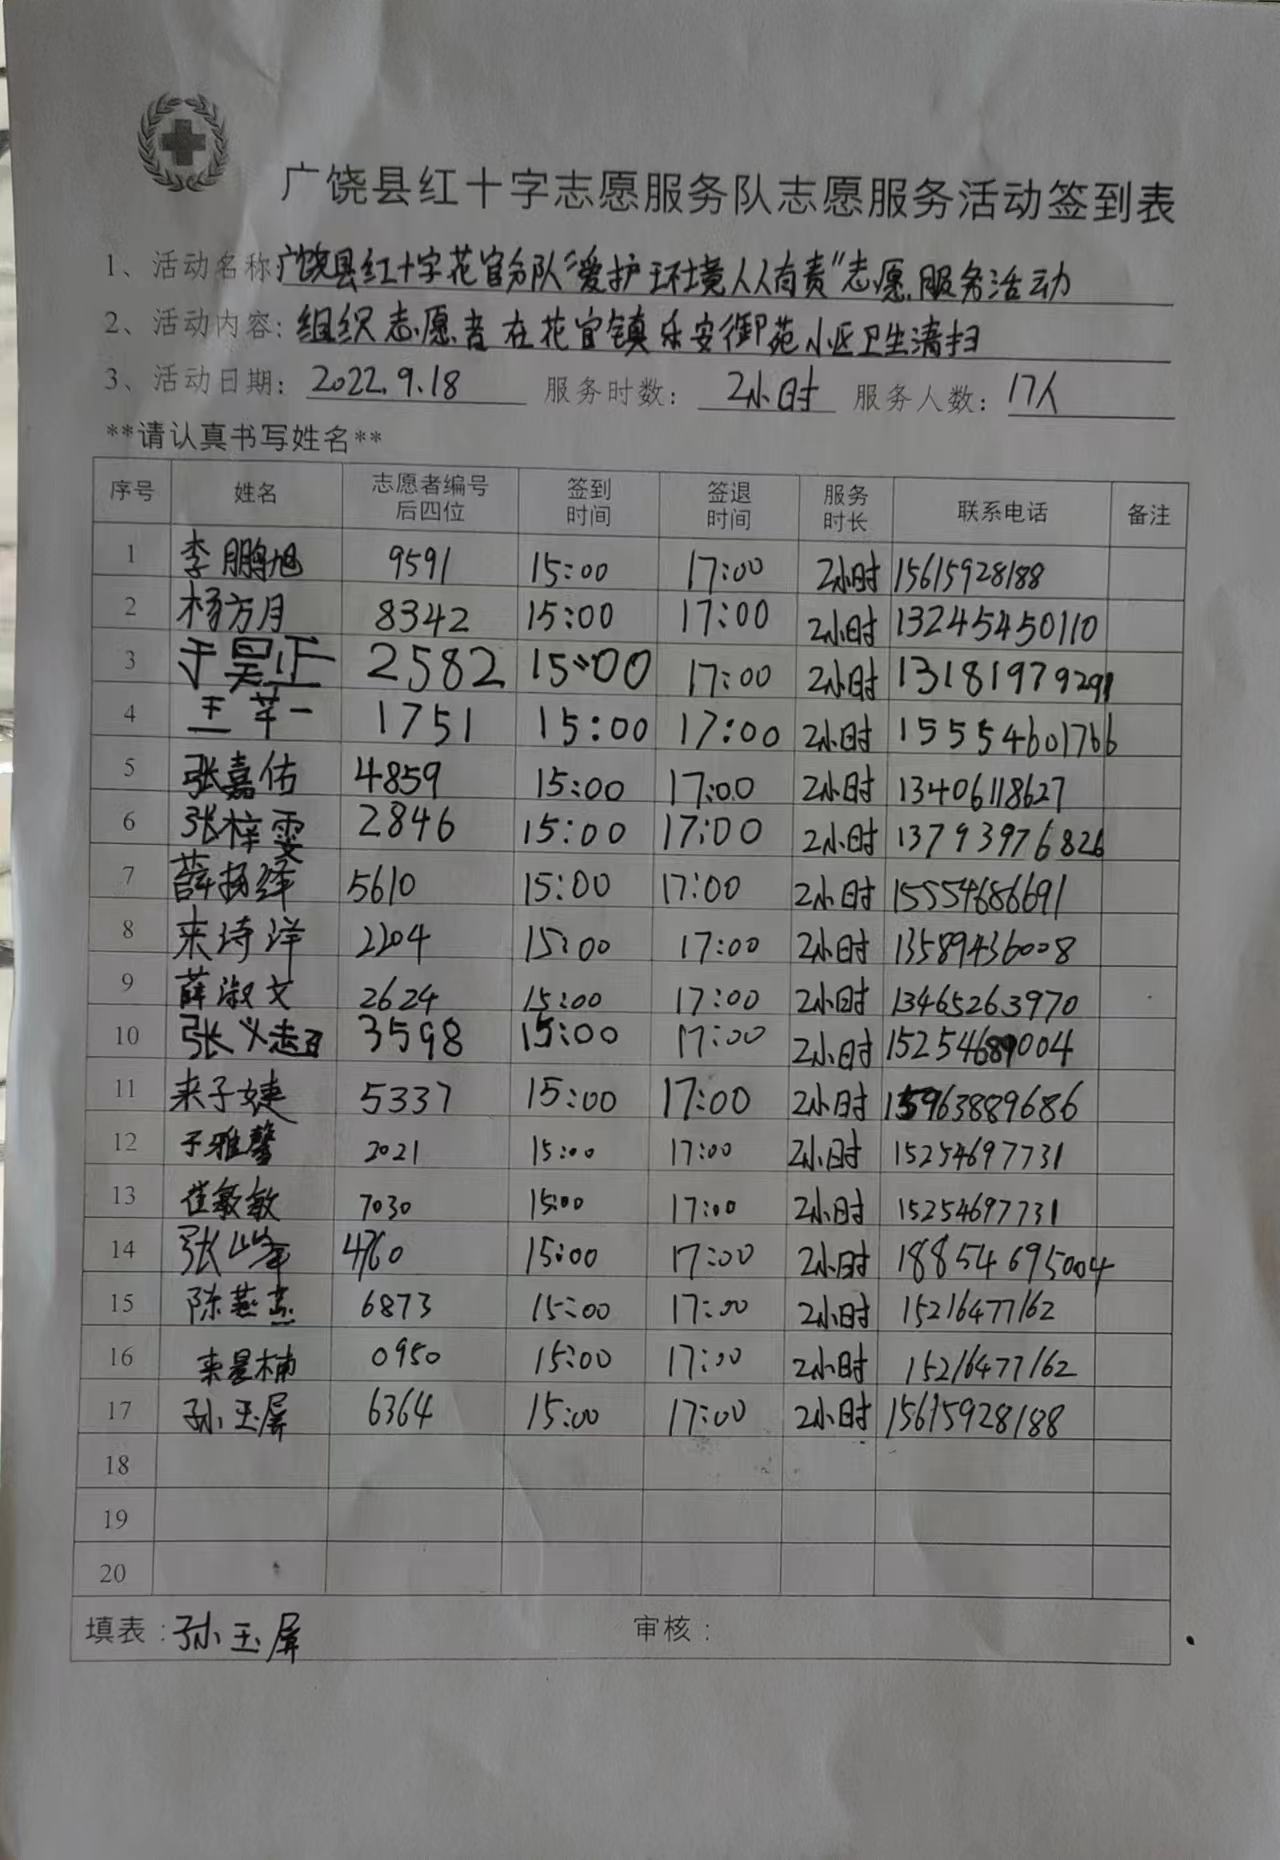 广饶县红十字志愿服务队志愿服务活动签到表
1、活动名称:广饶县红十字花官分队“爱护环境人人有责”志愿服务活动
2、活动内容:组织志愿者在花官镇乐安御苑小区卫生清扫
3、活动日期:2022.9.18 服务时数:2小时 服务人数:17人
**请认真书写姓名**
序号 姓名 志愿者编号后四位 签到时间 签退时间 服务时长 联系电话 备注
1 李鹏旭 9591 15:00 17:00 2小时 15615928188
2 杨方月 8342 15:00 17:00 2小时 13245450110
3 于昊正 2582 15:00 17:00 2小时 13181979291
4 王芊一 1751 15:00 17:00 2小时 15554601766
5 张嘉佑 4859 15:00 17:00 2小时 13406118627
6 张梓雯 2846 15:00 17:00 2小时 13793976826
7 薛扬绎 5610 15:00 17:00 2小时 15554686691
8 来诗洋 2204 15:00 17:00 2小时 13589436008
9 薛淑文 2624 15:00 17:00 2小时 13465263970
10 张义喆 3598 15:00 17:00 2小时 15254689004
11 来子婕 5337 15:00 17:00 2小时 15963889686
12 于雅馨 2021 15:00 17:00 2小时 15254697731
13 崔敏敏 7030 15:00 17:00 2小时 15254697731
14 张峰 4760 15:00 17:00 2小时 18854695004
15 陈燕燕 6873 15:00 17:00 2小时 15216477162
16 来星楠 0950 15:00 17:00 2小时 15216477162
17 孙玉屏 6364 15:00 17:00 2小时 15615928188
18
19
20
填表:孙玉屏 审核: